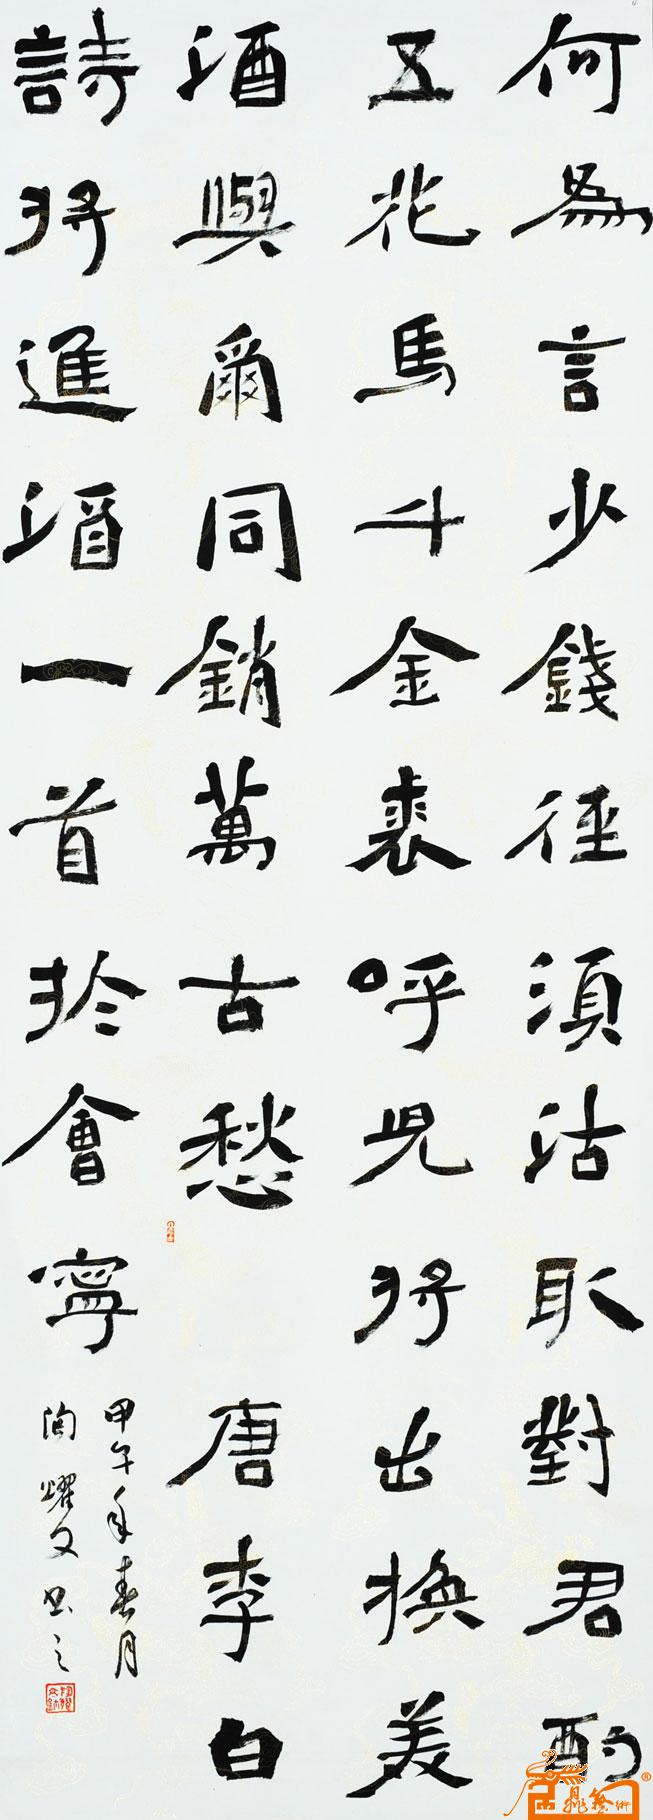 何為言少錢徑須沽取對君酌
五花馬千金裘呼兒將出換美
酒與爾同銷萬古愁 唐李白
詩將進酒一首於會寧
甲午年春月
陶躍文书之